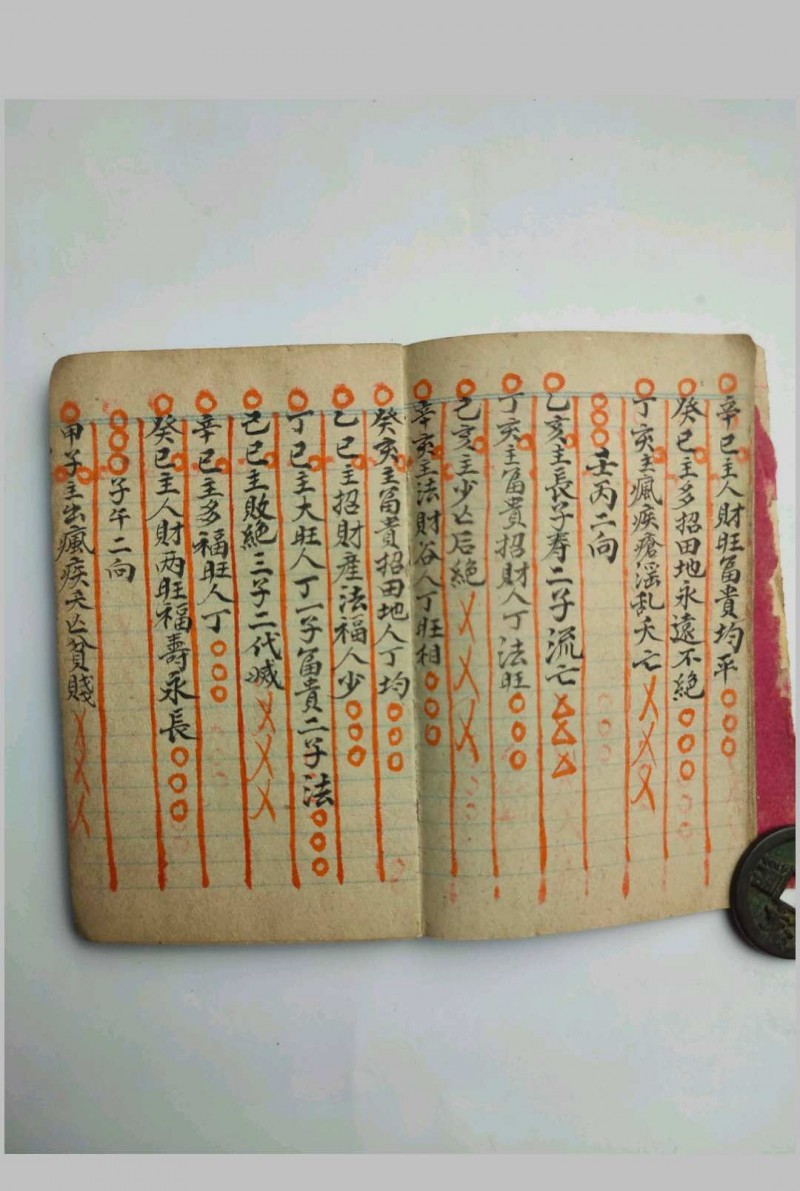 辛巳主人財旺冨貴均平
癸巳主多招田地永遠不絶
丁亥主瘋疾瘡滛乱夭亡
壬丙二向
乙亥主長子寿二子流亡
丁亥主冨貴招財人丁法旺
己亥主少亡后絶
辛亥主法財谷人丁旺相
癸亥主冨貴招田地人丁均
乙巳主招財産法福人少
丁巳主大旺人丁一子冨貴二子法
己巳主敗絶三子二代滅
辛巳主多福旺人丁
癸巳主人財两旺福壽永長
子午二向
甲子主出瘋疾夭亡貧賤